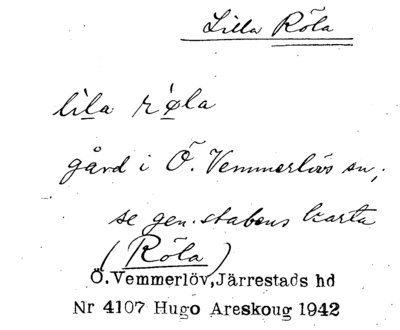 Lilla Röla
lila røla
gård i Ö. Vemmerlövs sn,
se gen.stabens karta
(Röla)
Ö.Vemmerlöv,Järrestads hd
Nr 4107 Hugo Areskoug 1942